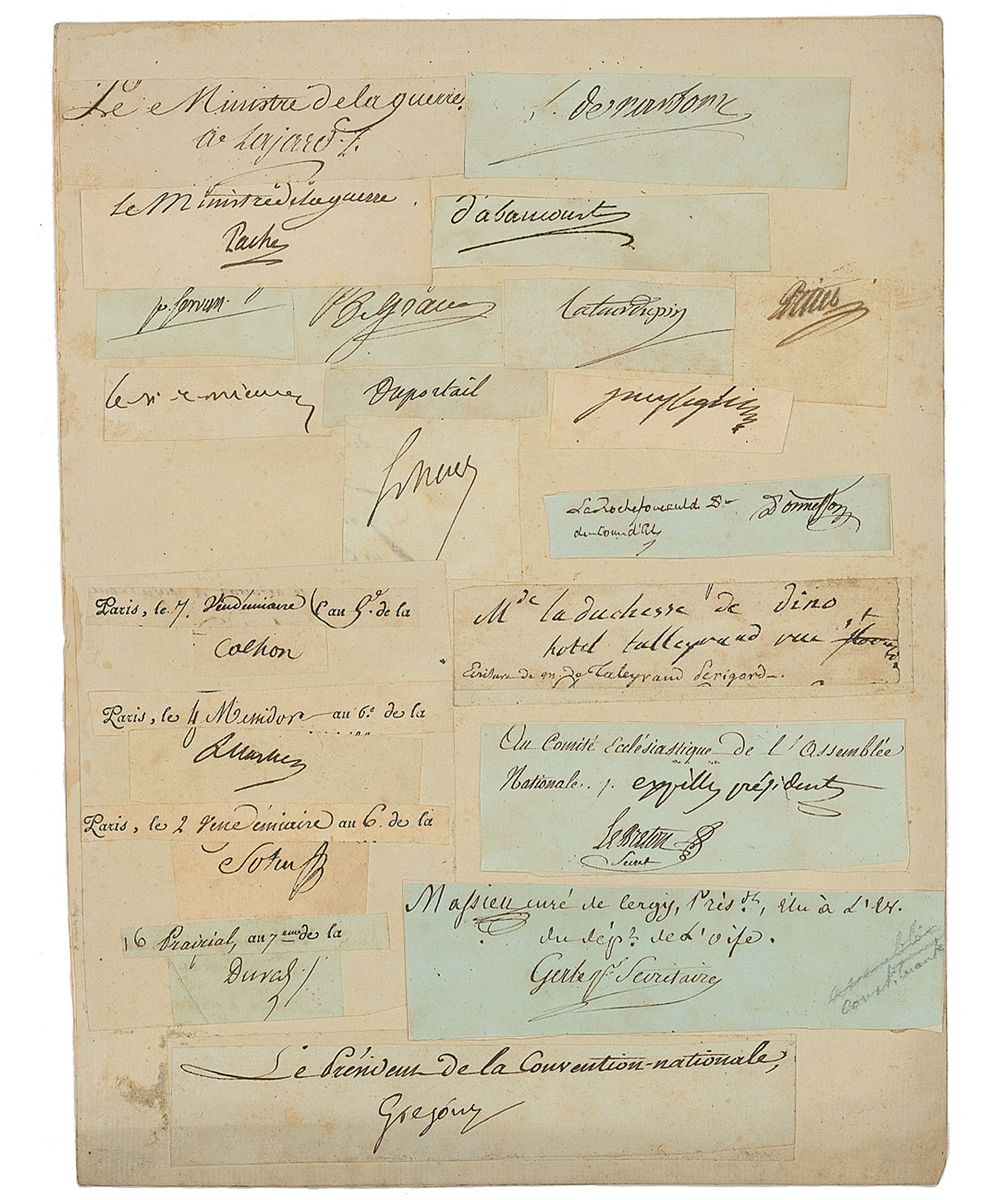 Le Ministre de la guerre
de Lajard
L. de narbonne
Le Ministre de la guerre
Pache
d'abancourt
j. servan
P. De Grave
Latourdupin
Duportail
La Rochefoucauld
D'ormesson
Paris, le 7. Vendémiaire l'an 5e. de la
Cochon
Mde la duchesse de dino
hotel talleyrand rue
Ecriture de mr. de Taleyrand Perigord
Paris, le 4 Messidor au 6e. de la
Au Comité Ecclésiastique de l'Assemblée
Nationale. expilly président
LeBreton
Secret
Paris, le 2 Vendémiaire au 6. de la
Sotin
Massieu curé de Cergy, Présdt, Elu à L'Ev.
du dépt. de L'Oise.
Gerle Secretaire
assemblée
constituante
16 Prairial, au 7eme de la
Duval
Le Président de la Convention-nationale,
Grégoire